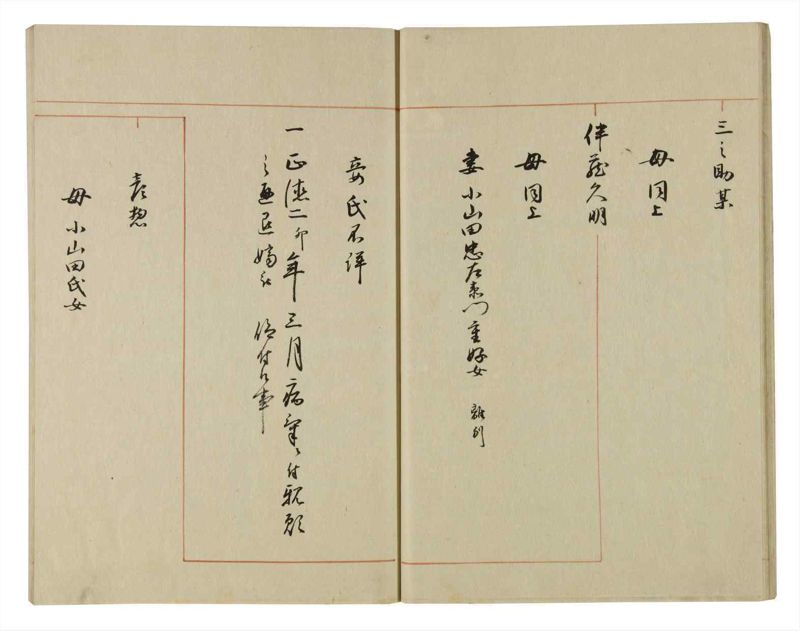 三之助某
母 同上
伴蔵久明
母 同上
妻 小山田忠左衛門重好女 離別
妾 氏不詳
一 正徳二卯年三月病気ニ付親願
之通退嫡被 仰付候事
母 小山田氏女